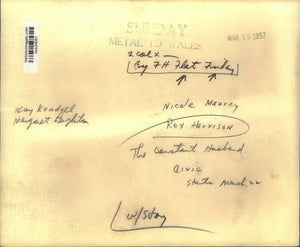 SUNDAY
METAL TO WALES
MAR 15 1957
2 col x
By 7H Flat
Kay Kendall
Margaret Leighton
Nicole Maurey
Rex Harrison
The Constant Husband
Civic
starts March 22
w/Story